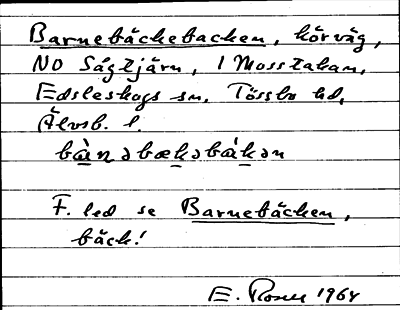 Barnebäckebacken, körväg,
NO Sågtjärn, I Mosstakan,
Edsleskogs sn, Tössbo hd,
Älvsb. l.
bὰn̠ə bæk̠əbὰk̠ən
F. led se Barnebäcken,
bäck!
E. Rosell 1964